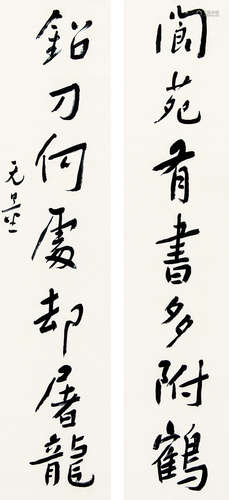 閬苑有書多附鶴
鉛刀何處却屠龍
无量